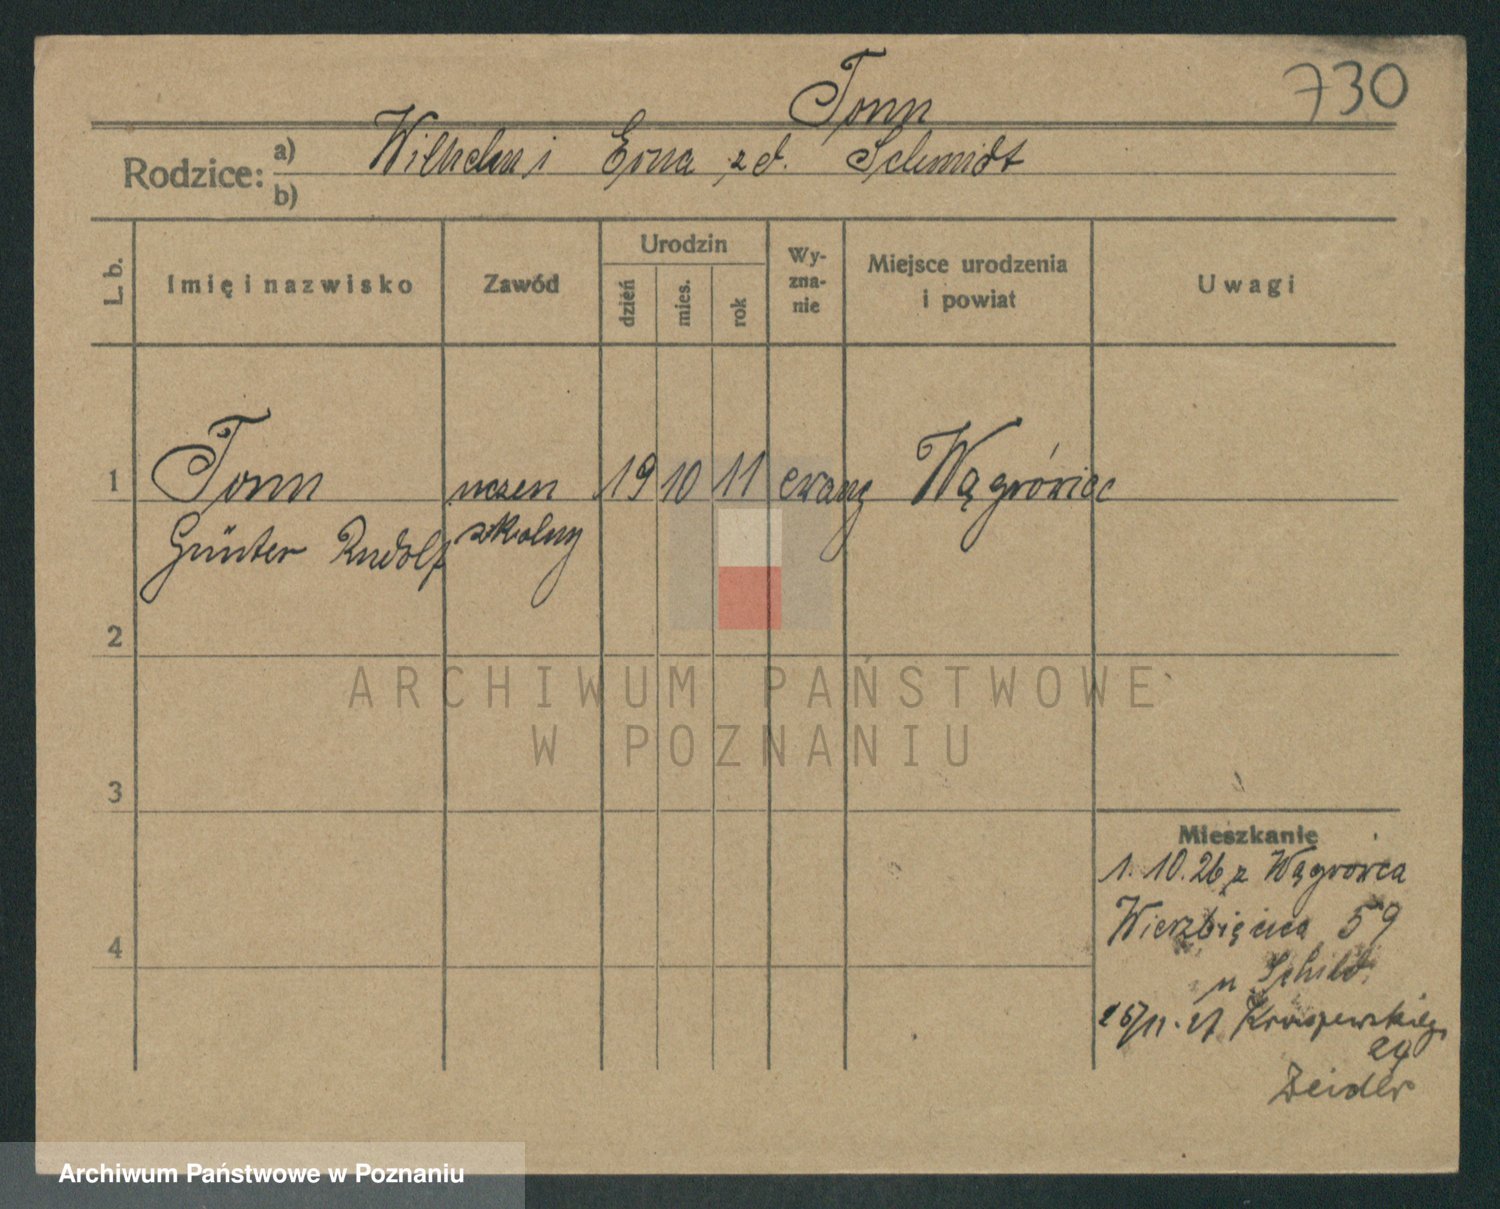 730
Tonn
Rodzice: a) Wilhelm i Erna z d. Schmidt
b)
L. b.
Imię i nazwisko
Zawód
Urodzin
dzień
mies.
rok
Wy-
zna-
nie
Miejsce urodzenia
i powiat
Uwagi
1 Tonn uczen 19 10 11 ewang Wągrówiec
Günter Rudolf szkolny
2
ARCHIWUM PAŃSTWOWE
W POZNANIU
3
Mieszkanie
1. 10. 26 z Wągrowca
Wierzbięcica 59
4
u Schild
25/11. 27 Kraszewskieg
Zeidler
Archiwum Państwowe w Poznaniu